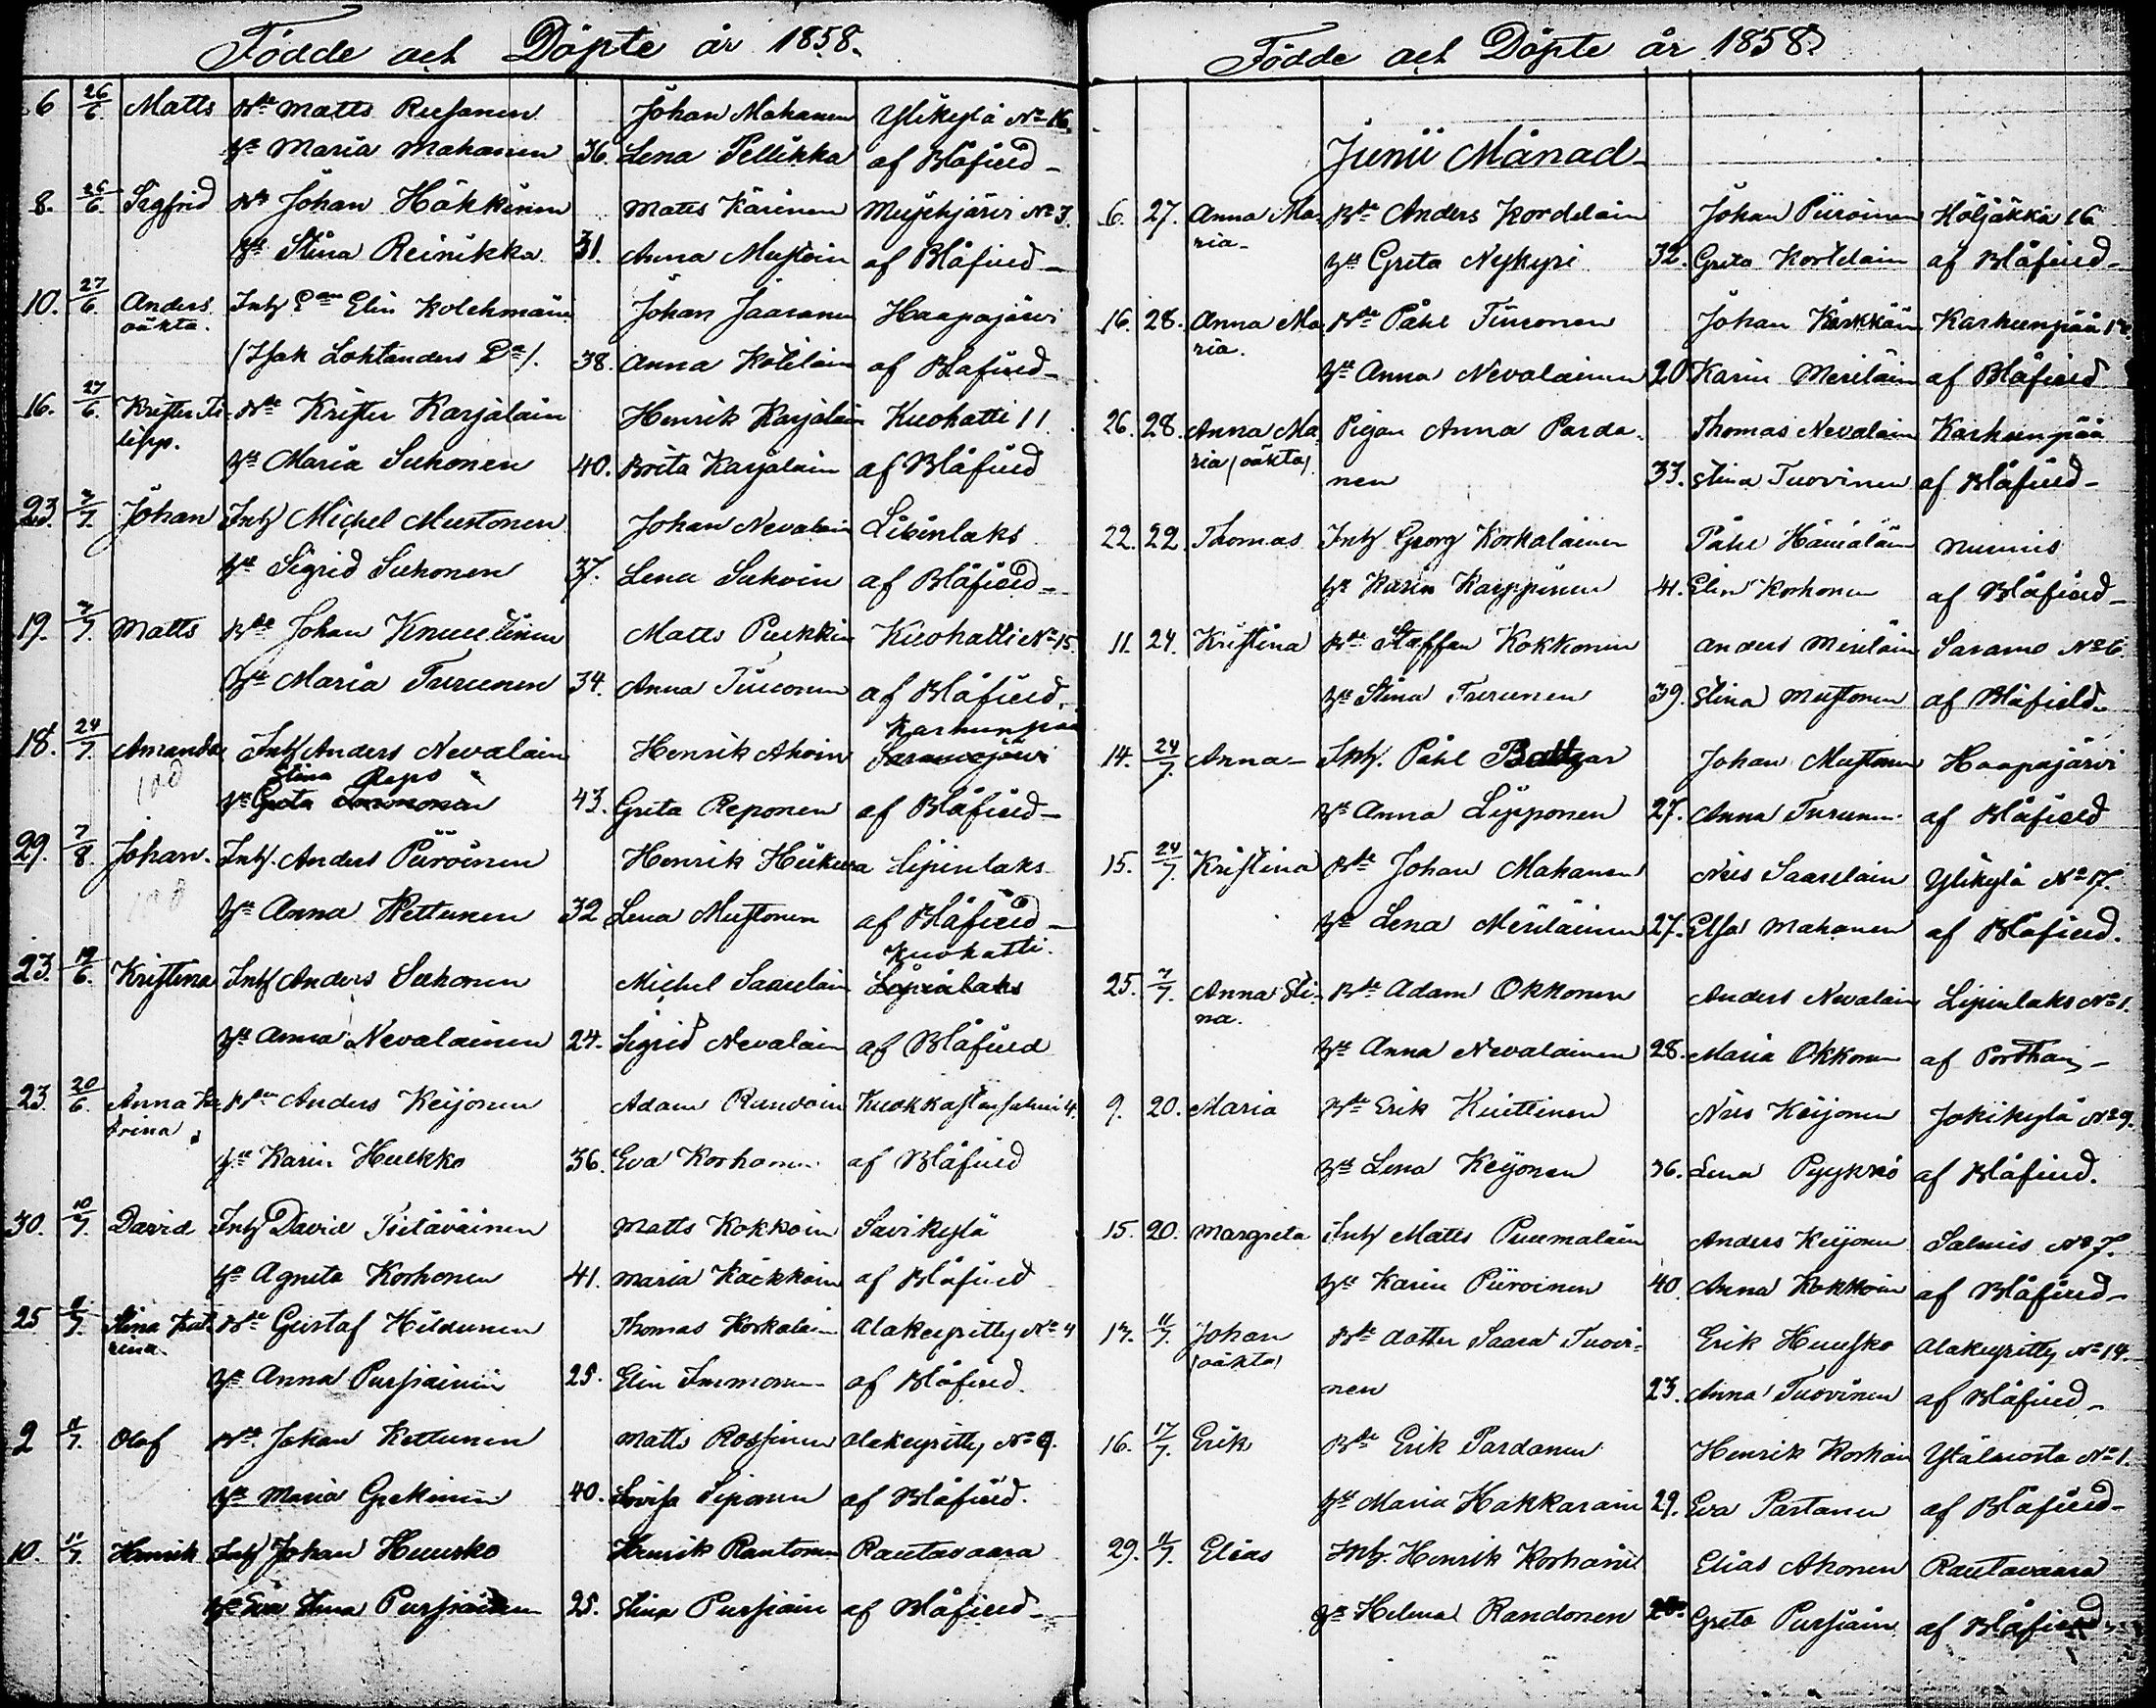 Födde och Döpte år 1858.
6 26/6. Matts Bde Matts Rusanen Johan Mahanen Ylikylä No 16.
H: Maria Mahanen 36. Lena Pellikka af Blåfield
8. 26/6. Sigfrid Bde Johan Häkkinen Matts Kärinen Mujehjärvi No 3.
H: Stina Reinikka 31. Anna Mustoin af Blåfield
10. 27/6. Anders Inh Elin Kolehmain Johan Jaaranen Haapajärvi
oäkta.
(Isak Lohtanders 38. Anna Kotilain af Blåfield
16. 27/6. Krister Fi Bde Krister Karjalain Henrik Karjalain Kuohatti 11
lipp.
H: Maria Suhonen 40. Brita Karjalain af Blåfield
23. 3/7. Johan Inh Michel Mustonen Johan Nevalain
H: Sigrid Suhonen 37. Lena Suhoin af Blåfield
19. 3/7. Matts Bde Johan Knuutinen Matts Purkkin Kuohatti No 15
H: Maria Turunen 34. Anna Tiuronen af Blåfield.
Karhunpää
18. 24/7. Amanda Inh Anders Nevalain Henrik Ahoin Saramojärvi
Stina Repo
H: Greta Immonen 43. Greta Reponen af Blåfield
29. 7/8. Johan. Inh. Anders Piiroinen Henrik Heikura Lipinlaks
H: Anna Kettunen 32 Lena Mustonen af Blåfield
Kuohatti.
23. 19/6. Kristina Inh Anders Suhonen Michel Saarelain Lipinlaks
H: Anna Nevalainen 24. Sigrid Nevalain af Blåfield
23. 20/6. Anna Ka Anders Keijonen Adam Ruvoin
trina
H: Karin Huckko 36. Eva Korhonen af Blåfield
30. 10/7. David Inh David Tietäväinen Matts Kokkoin Savikylä
H: Agneta Korhonen 41. Maria Käckkäin af Blåfield
25 Stina Kat Bde Gustaf Hildunen Thomas Korkalain Alakeyritty No 4
rina.
H: Anna Pursiainin 25. Elin Immonen af Blåfield.
2 11/7. Olof Bde Johan Kettunen Matts Rossinen Alakeyritty No 9.
H: Maria Grekinin 40. Lovisa Siponen af Blåfield.
10. 11/7. Henrik Inh Johan Huusko Henrik Rautonen Rautavaara
H: Eva Stina Pursiainen 25. Stina Pursiain af Blåfield
Födde och Döpte år 1858.
Junii Månad
6. 27. Anna Ma Bde Anders Kordelain Johan Piiroinen Höljäkkä 16
ria
H: Greta Nykyri 32. Greta Kortelain af Blåfield
16. 28. Anna Ma Bde Påhl Tiuronen Johan Kärkkäin Karhunpää
ria.
H: Anna Nevalainen 20 Karin Meriläin af Blåfield
26. 28. Anna Ma Pigan Anna Parda Thomas Nevalain Karhunpää
ria (oäkta)
nen 33. Stina Tuovinen af Blåfield
22. 22. Thomas Inh Georg Korkalainen Påhl Hämäläin Nurmis
H: Karin Karppinen 41. Elin Korhonen af Blåfield
11. 24. Kristina Bde Staffan Kokkonen Anders Meriläin Saramo No 6.
H: Stina Turunen 39. Stina Mustonen af Blåfield.
14. 24/7. Anna Inh. Påhl Baltzar Johan Mustonen Haapajärvi
H: Anna Lipponen 27. Anna Turunen af Blåfield
15. 24/7. Kristina Bde Johan Mahanen Nils Saarelain Ylikylä No 17.
H: Lena Meriläinen 27. Elsa Mahanen af Blåfield.
25. 7/7. Anna Sti Bde Adam Okkonen Anders Nevalain Lipinlaks No 1.
na.
H: Anna Nevalainen 28. Maria Okkonen af Porthan
9. 20. Maria Bde Erik Kuittinen Nils Keijonen Jokikylä No 9.
H: Lena Keijonen 36. Lena Pyykkö af Blåfield.
15. 20. Margreta Inh Matts Puumalain Anders Keijonen Salmis No 7.
H: Karin Piiroinen 40 Anna Kokkoin af Blåfield
17. 11/7. Johan Bde dotter Saara Tuovi Erik Huusko Alakeyritty No 14.
(oäkta)
nen 23. Anna Tuovinen af Blåfield
16. 17/7. Erik Bde Erik Pardanen Henrik Korhoin No 1.
H: Maria Hakkarain 29. Eva Partanen af Blåfield
29. 11/7. Elias Inh. Henrik Korhoin Elias Ahonen Rautavaara
H: Helena Randonen Greta Pursiain af Blåfield